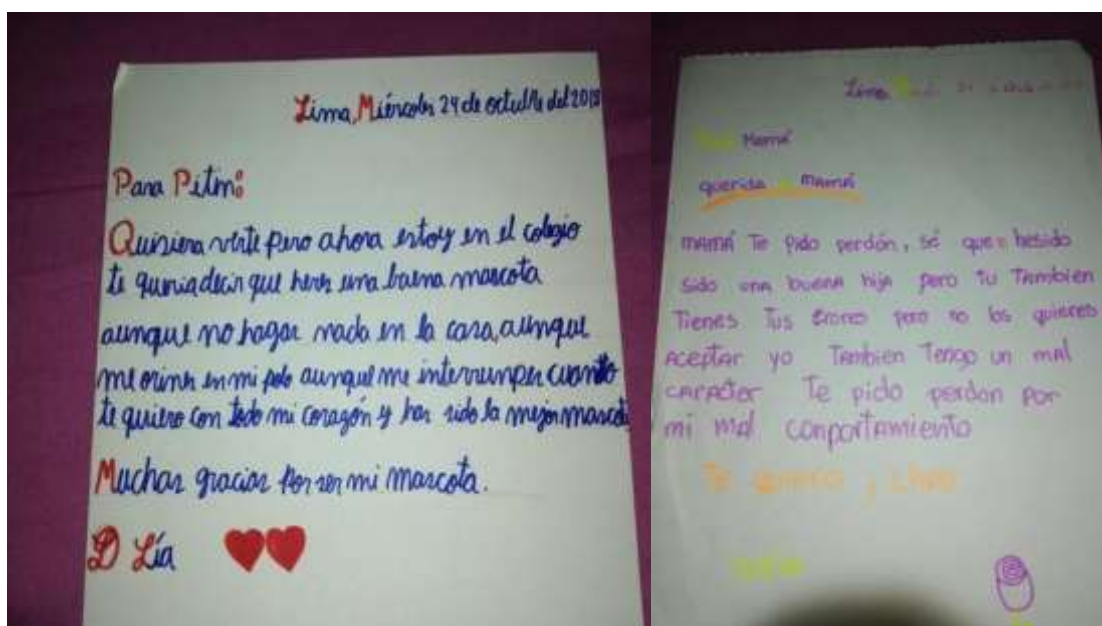 Lima, Miércoles 24 de octubre del 2018
Para Pitín:
Quisiera verte pero ahora estoy en el colegio
te queria decir que heres una buena mascota
aunque no hagas nada en la casa, aunque
me orines en mi pelo aunque me interrumpes cuanto
te quiero con todo mi corazón y has sido la mejor mascota
Muchas gracias por ser mi mascota.
D Lía
Lima
Mamá
querida mamá
MAMÁ Te pido perdón, sé que
sido una buena hija pero Tu Tambien
Tienes Tus Erores pero no los quieres
Aceptar yo Tambien Tengo un mal
CARACTER Te pido perdon por
mi mal conportamiento
Te